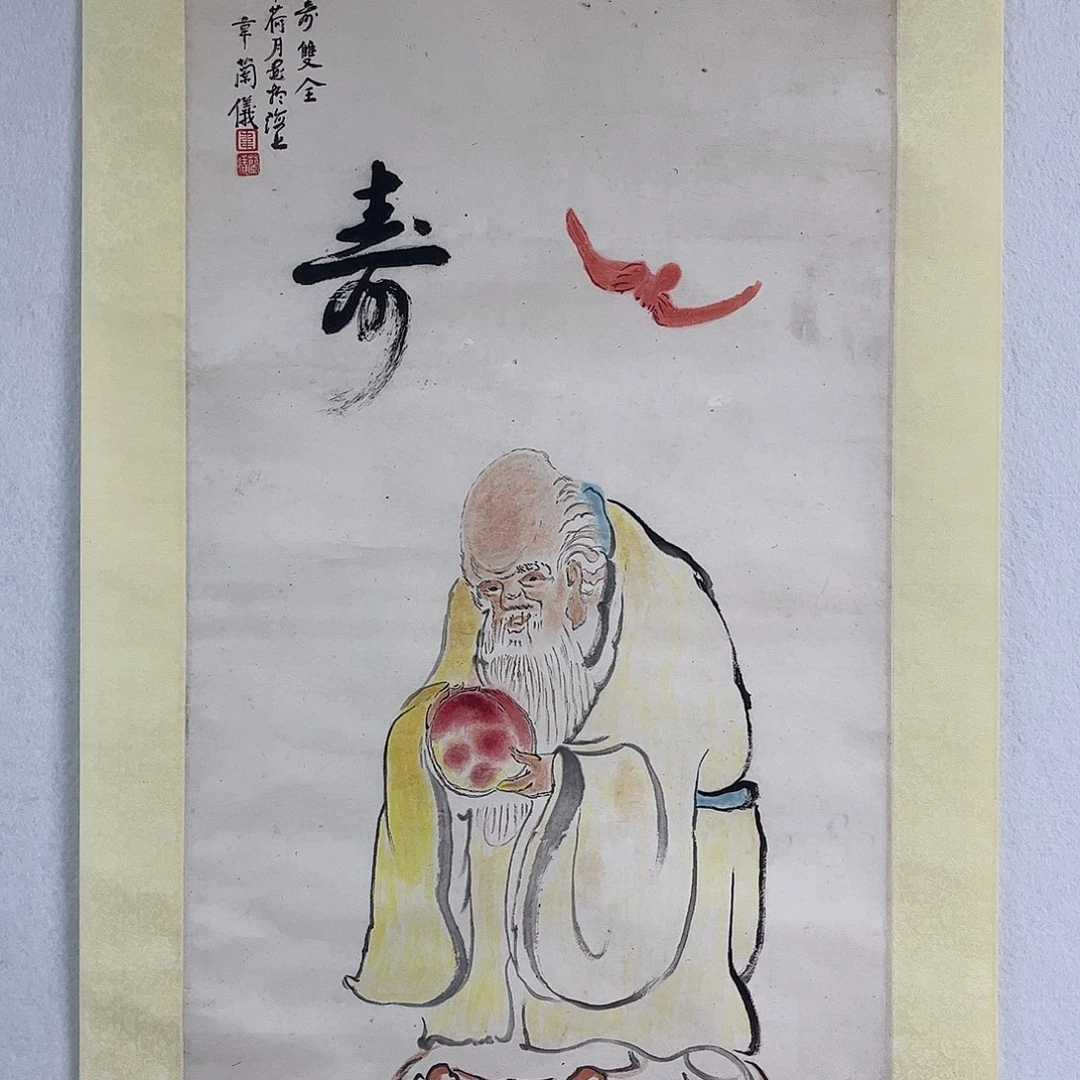 壽雙全
荷月畫於海上
韋蘭儀
壽